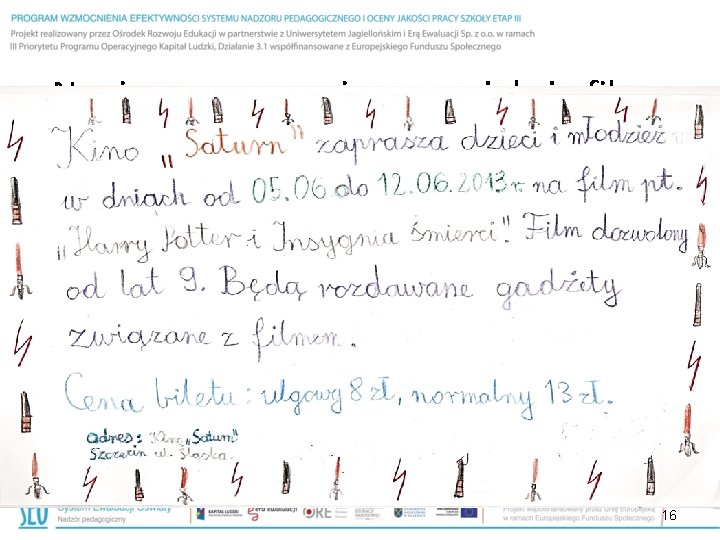 PROGRAM WZMOCNIENIA EFEKTYWNOŚCI SYSTEMU NADZORU PEDAGOGICZNEGO I OCENY JAKOŚCI PRACY SZKOŁY ETAP III
Projekt realizowany przez Ośrodek Rozwoju Edukacji w partnerstwie z Uniwersytetem Jagiellońskim i Erą Ewaluacji Sp. z o.o. w ramach
III Priorytetu Programu Operacyjnego Kapitał Ludzki, Działanie 3.1 współfinansowane z Europejskiego Funduszu Społecznego
Kino „Saturn" zaprasza dzieci i młodzież
w dniach od 05.06 do 12.06.2013 r. na film pt.
„Harry Potter i Insygnia śmierci". Film dozwolony
od lat 9. Będą rozdawane gadżety
związane z filmem.
Cena biletu: ulgowy 8 zł, normalny 13 zł.
adres: Kino „Saturn"
Szczecin ul. Śląska.
System Ewaluacji Oświaty
Nadzór pedagogiczny
KAPITAŁ LUDZKI
ORE
Projekt współfinansowany przez Unię Europejską
w ramach Europejskiego Funduszu Społecznego
16